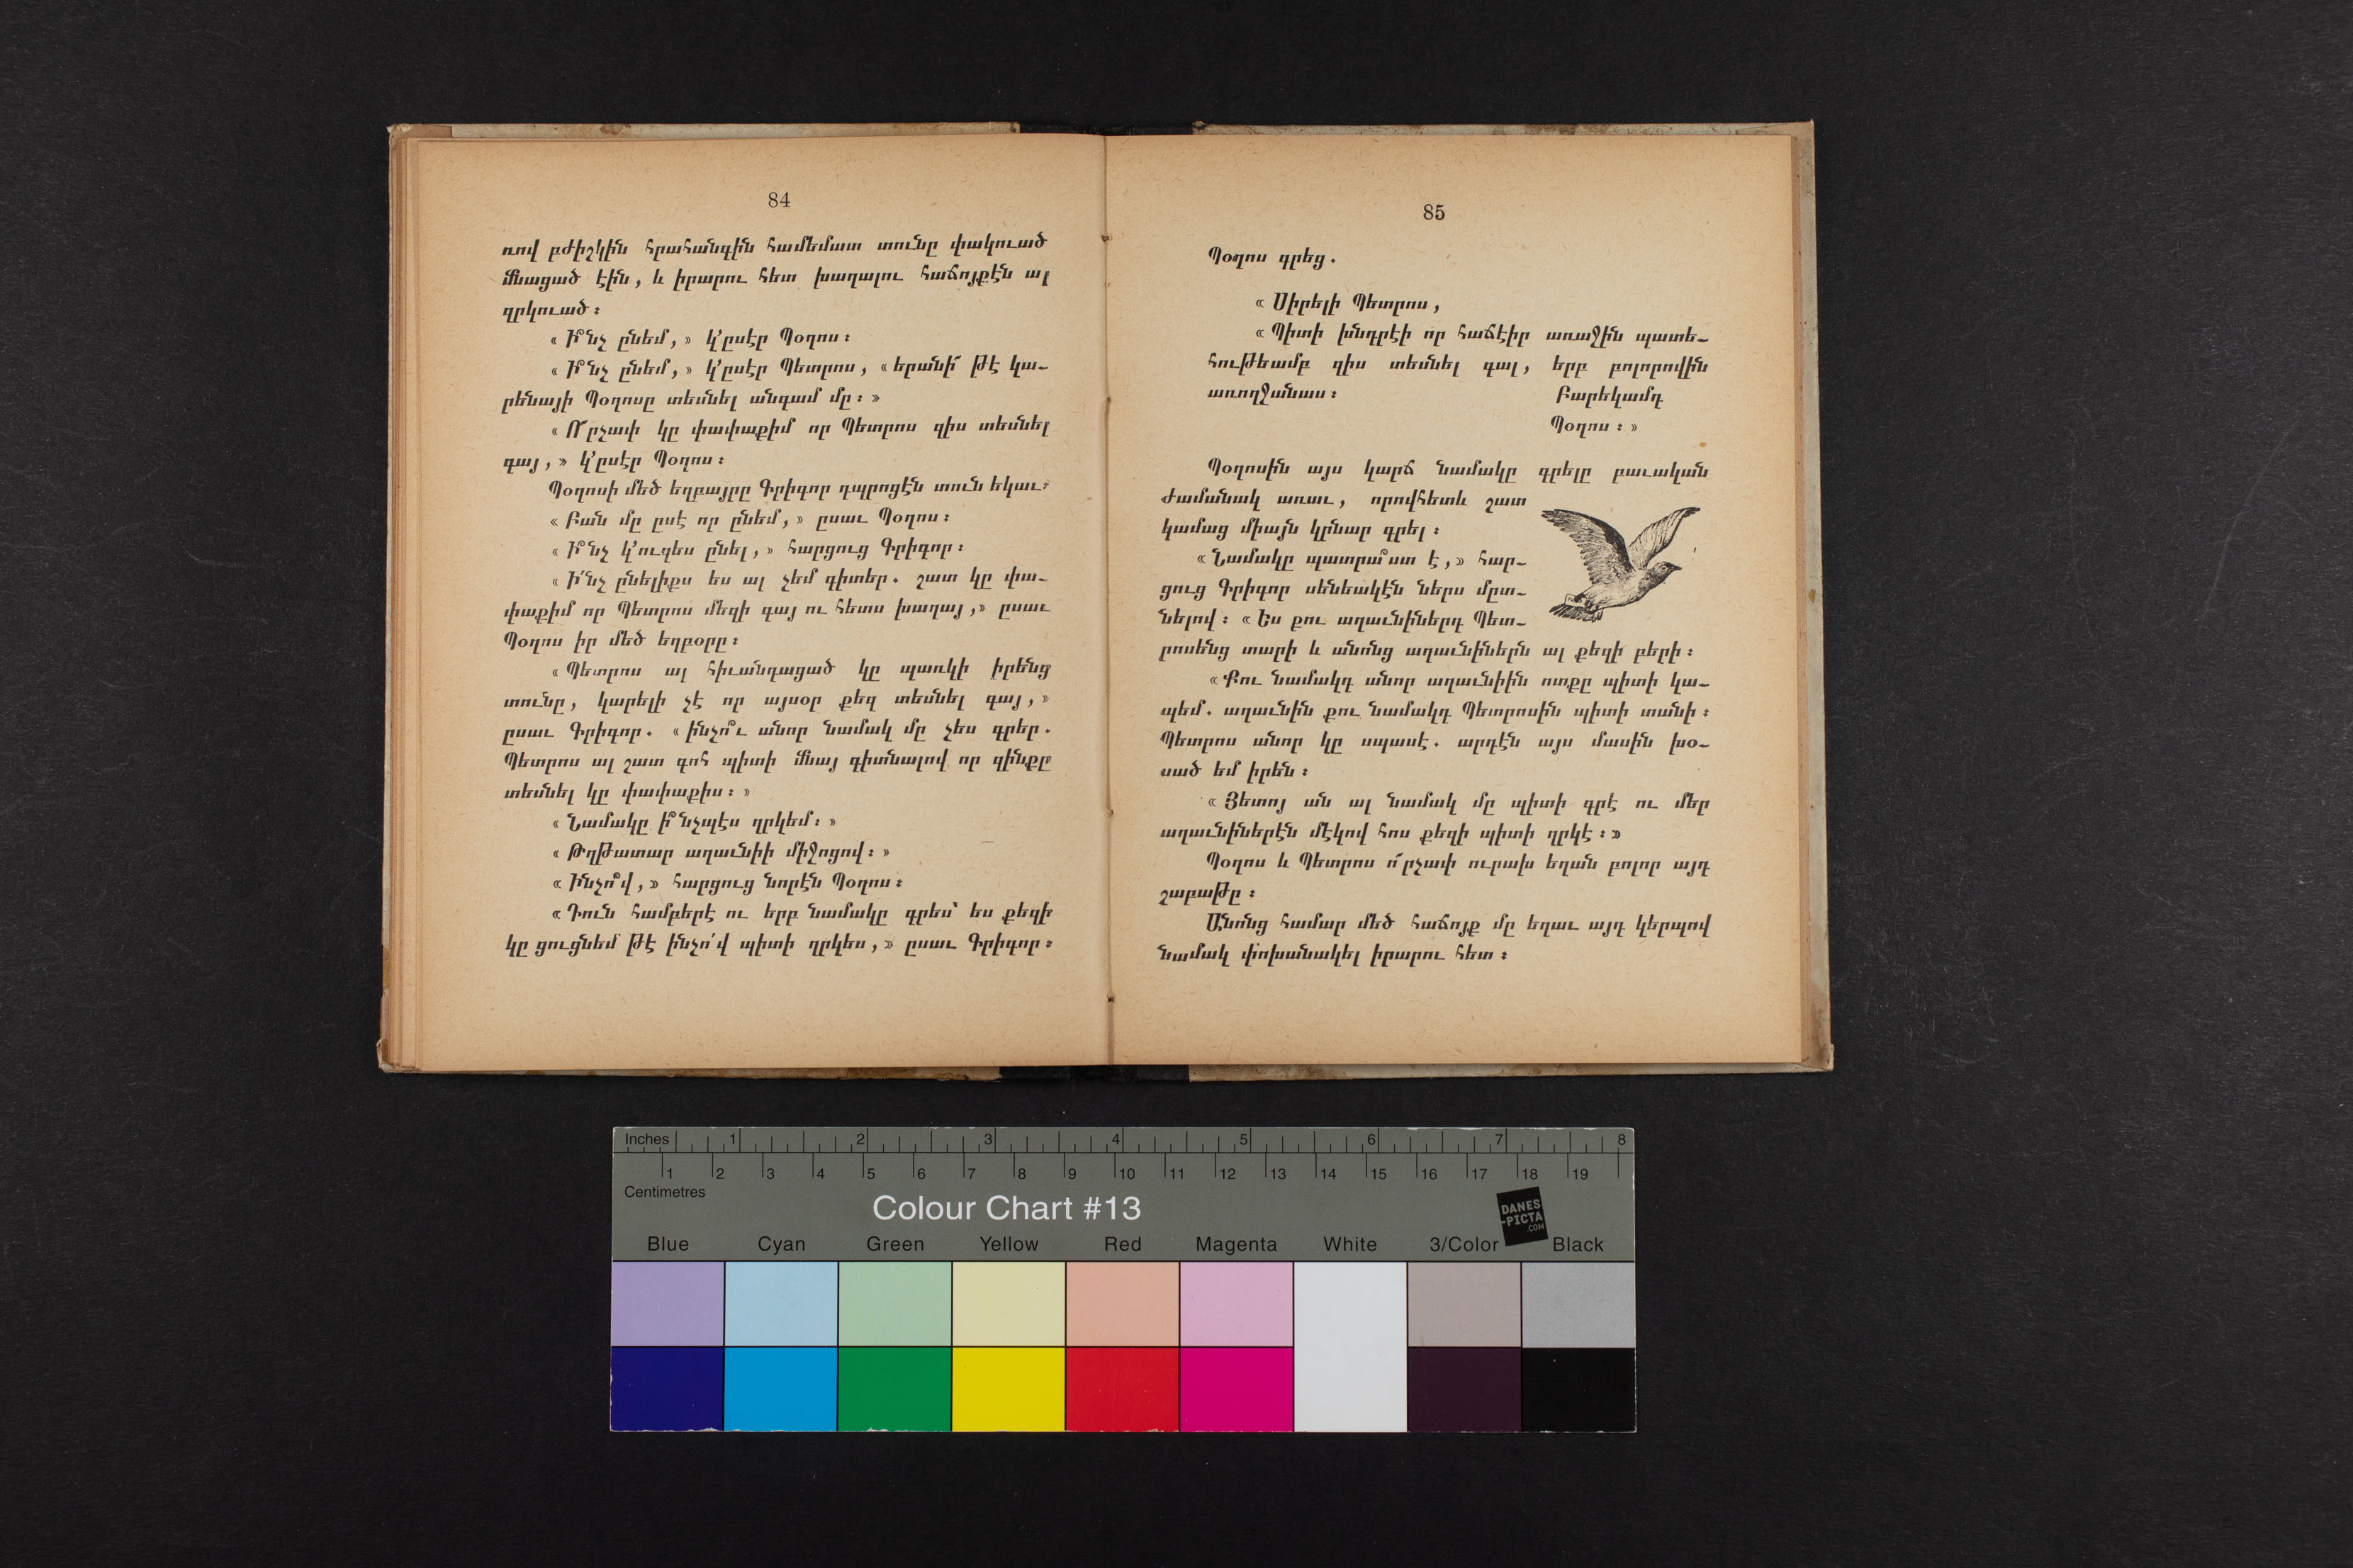 84
ռով բժիշկին հրահանգին համեմատ տունը փակուած
մնացած էին, և իրարու հետ խաղալու հաճոյքէն ալ
զրկուած։
« Ի՞նչ ընեմ,» կ՚ըսէր Պօղոս։
« Ի՞նչ ընեմ,» կ՚ըսէր Պետրոս, « երանի՜ թէ կա-
րենայի Պօղոսը տեսնել անգամ մը։ »
« Ո՜րչափ կը փափաքիմ որ Պետրոս զիս տեսնել
գայ,» կ՚ըսէր Պօղոս։
Պօղոսի մեծ եղբայրը Գրիգոր դպրոցէն տուն եկաւ։
« Բան մը ըսէ որ ընեմ,» ըսաւ Պօղոս։
« Ի՞նչ կ՚ուզես ընել,» հարցուց Գրիգոր։
« Ի՛նչ ընելիքս ես ալ չեմ գիտեր. շատ կը փա-
փաքիմ որ Պետրոս մեզի գայ ու հետս խաղայ,» ըսաւ
Պօղոս իր մեծ եղբօրը։
« Պետրոս ալ հիւանդացած կը պառկի իրենց
տունը, կարելի չէ որ այսօր քեզ տեսնել գայ,»
ըսաւ Գրիգոր. « ինչո՞ւ անոր նամակ մը չես գրեր.
Պետրոս ալ շատ գոհ պիտի մնայ գիտնալով որ զինքը
տեսնել կը փափաքիս։ »
« Նամակը ի՞նչպէս ղրկեմ։ »
« Թղթատար աղաւնիի միջոցով։ »
« Ինչո՞վ,» հարցուց նորէն Պօղոս։
« Դուն համբերէ ու երբ նամակը գրես՝ ես քեզի
կը ցուցնեմ թէ ինչո՛վ պիտի ղրկես,» ըսաւ Գրիգոր։
85
Պօղոս գրեց.
« Սիրելի Պետրոս,
« Պիտի խնդրէի որ հաճէիր առաջին պատե-
հութեամբ զիս տեսնել գալ, երբ բոլորովին
առողջանաս։ Բարեկամդ
Պօղոս։ »
Պօղոսին այս կարճ նամակը գրելը բաւական
ժամանակ առաւ, որովհետև շատ
կամաց միայն կրնար գրել։
« Նամակը պատրա՞ստ է,» հար-
ցուց Գրիգոր սենեակէն ներս մըտ-
նելով։ « Ես քու աղաւնիներդ Պետ-
րոսենց տարի և անոնց աղաւնիներն ալ քեզի բերի։
« Քու նամակդ անոր աղաւնիին ոտքը պիտի կա-
պեմ. աղաւնին քու նամակդ Պետրոսին պիտի տանի։
Պետրոս անոր կը սպասէ. արդէն այս մասին խօ-
սած եմ իրեն։
« Յետոյ ան ալ նամակ մը պիտի գրէ ու մեր
աղաւնիներէն մէկով հոս քեզի պիտի ղրկէ։ »
Պօղոս և Պետրոս ո՜րչափ ուրախ եղան բոլոր այդ
շաբաթը։
Անոնց համար մեծ հաճոյք մը եղաւ այդ կերպով
նամակ փոխանակել իրարու հետ։
Inches 1 2 3 4 5 6 7 8
1 2 3 4 5 6 7 8 9 10 11 12 13 14 15 16 17 18 19
Centimetres
Colour Chart #13
DANES
-PICTA
.COM
Blue Cyan Green Yellow Red Magenta White 3/Color Black